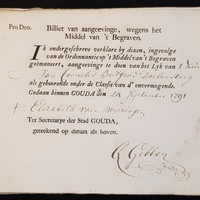 Pro Deo.
Billiet van aangeevinge, wegens het
Middel van 't Begraven.
Ik ondergeschreven verklare by deezen, ingevolge
van de Ordonnantie op 't Middel van 't Begraven
geëmaneert, aangeevinge te doen van het Lyk van
Jan Cornelis
als gehoorende onder de Classis van d' onvermogende.
Gedaan binnen GOUDA den 24 September 1791
Elizabeth van
Ter Secretarye der Stad GOUDA,
geteekend op datum als boven.